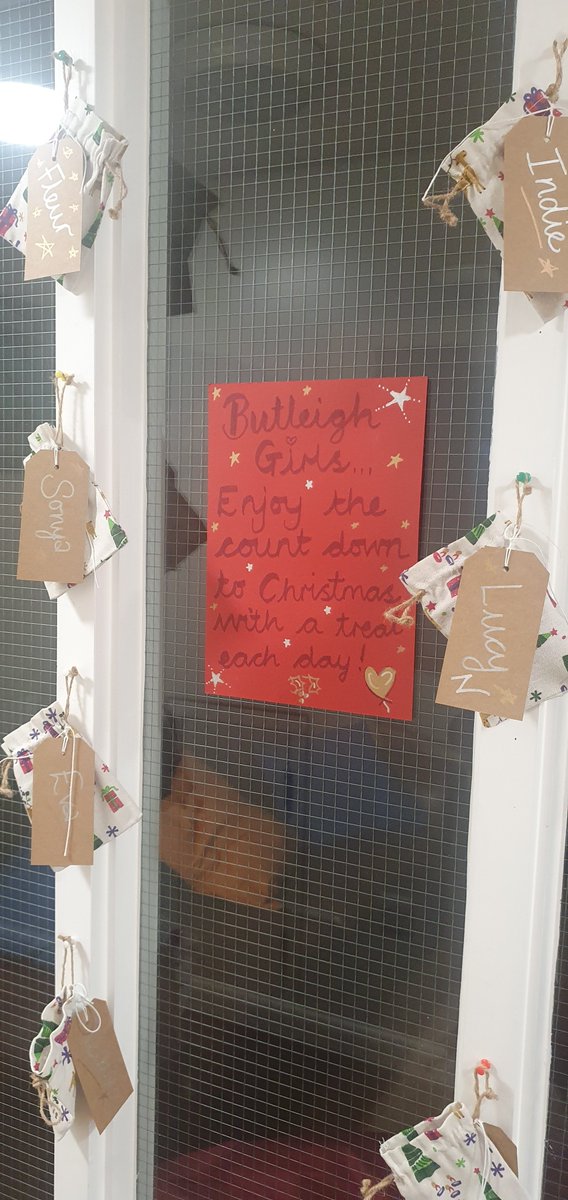 Fleur
Indie
Butleigh
Girls...
Enjoy the
count down
to Christmas
with a treat
each day!
Sonya
Lucy N
Eva